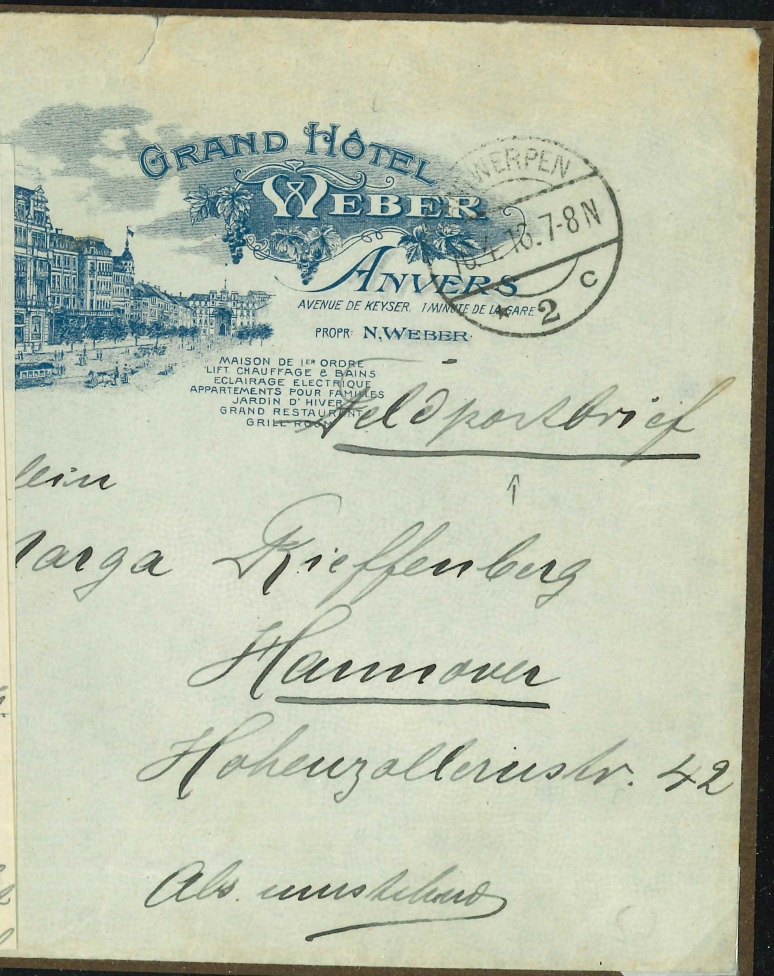 GRAND HÔTEL
WEBER
ANVERS
AVENUE DE KEYSER, 1 MINUTE DE LA GARE
PROPR: N. WEBER
MAISON DE 1ER ORDRE
LIFT CHAUFFAGE & BAINS
ECLAIRAGE ELECTRIQUE
APPARTEMENTS POUR FAMILLES
JARDIN D'HIVER
GRAND RESTAURANT
GRILL-ROOM
WERPEN
7-8N
* 2 c
Feldpostbrief
lein
arga Rieffenberg
Hannover
Hohenzollernstr. 42
Abs. umstehend